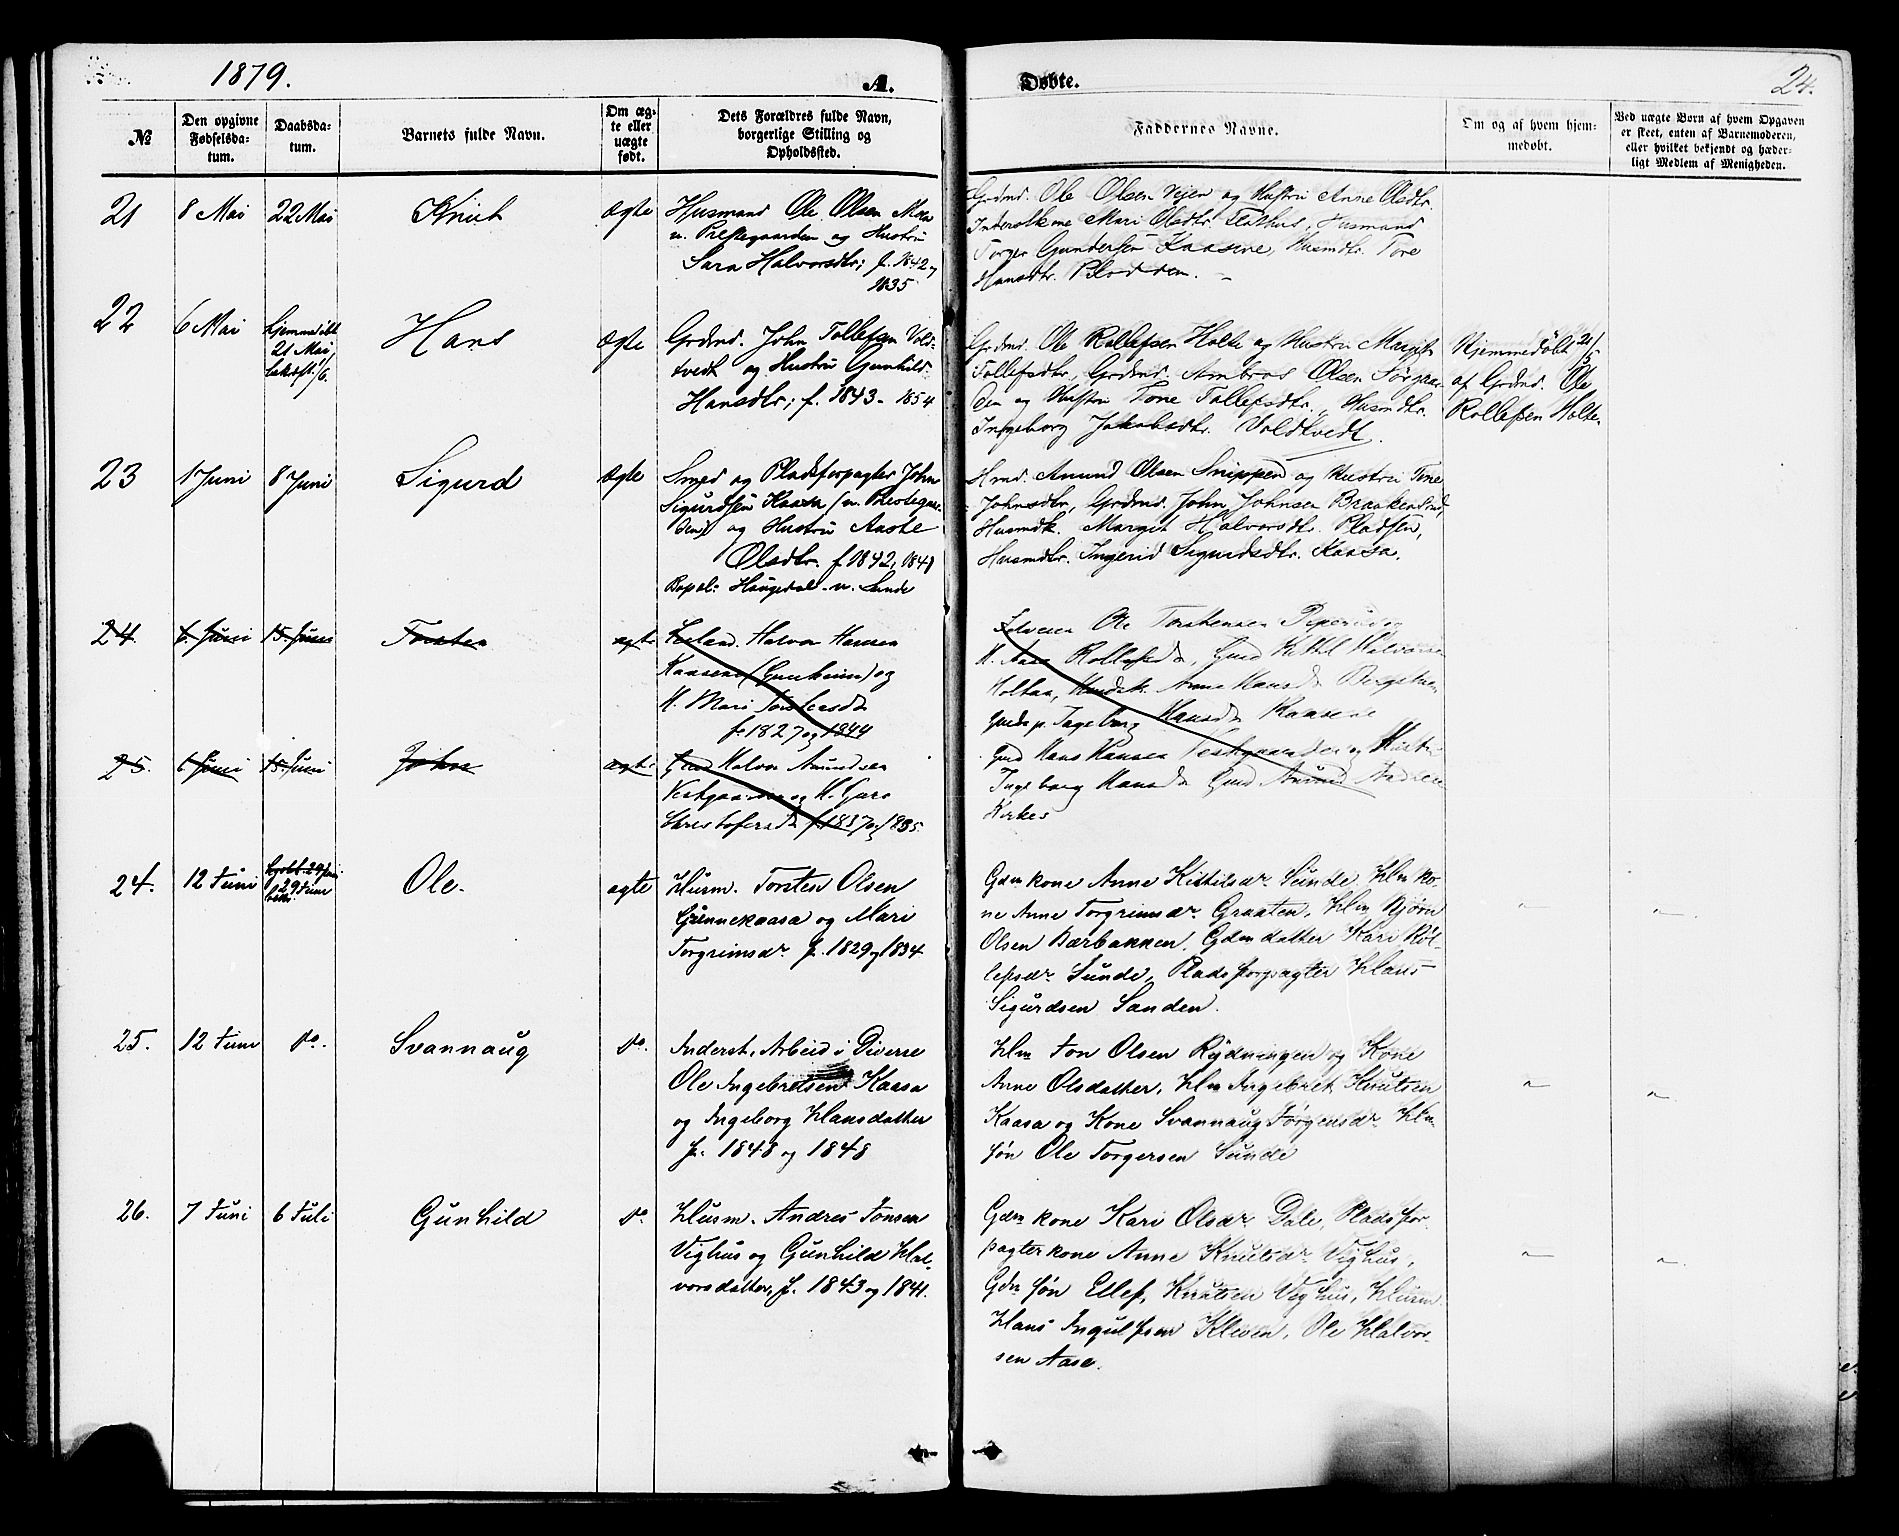 1879.
A.
Døbte.
24.
№
Den opgivne
Fødselsda-
tum.
Daabsda-
tum.
Barnets fulde Navn.
Om æg-
te eller
uægte
født.
Dets Forældres fulde Navn,
borgerlige Stilling og
Opholdssted.
Faddernes Navne.
Om og af hvem hjem-
medøbt.
Ved uægte Born af hvem Opgaven
er skeet, enten af Barnemoderen,
eller hvilket bekjendt og hæder-
ligt Medlem af Menigheden.
21
8 Mai
22 Mai
Knut
Ægte
Husmand Ole Olsen Moen
u. Prestegaarden og Hustru
Sara Halvorsdtr; f. 1842 og
1835
Grdmd. Ole Olsen Vejen og Hustru Anne Olsdtr.
Inderstkone Mari Olsdtr. Husmand
Torger Gundersen Kaasene, Husmdtr. Tore
Hansdtr. Plassen.
22
6 Mai
hjemmedøbt
21 Mai,
bekræft. /6.
Hans
Ægte
Grdmd. John Tollefsen Vold-
tvedt og Hustru Gunhild
Hansdtr; f. 1843 - 1854
Grdmd. Ole Rollefsen Holte og Hustru Margit
Tollefsdtr, Grdmd. Ambros Olsen Sørgaar-
den og Hustru Tone Tollefsdtr., Husmdtr.
Ingeborg Jakobsdtr. Voldtvedt.
Hjemmedöbt 21/5
af Grdmd. Ole
Rollefsen Holte.
23
1 Juni
8 Juni
Sigurd
Ægte
Smed og Pladsforpagter John
Sigurdsen Kaasa (u. Prestegaar-
den) og Hustru Aaste
Olsdtr. f. 1842, 1841
Bopæl: Haugedal u. Sunde
Hmd. Amund Olsen Snippen og Hustru Tone
Johnsdtr, Grdmd. John Johnsen Braakensrud,
Husmdk. Margit Halvorsdtr. Pladsen,
Husmdtr. Ingerid Sigurdsdtr. Kaasa.
24.
6. Juni
15. Juni
Torsten
ægte
Halvor Hansen
Kaasene (Gunheim) og
H. Mari Torstensdtr
f. 1827 og 1844
Ole Torstensen Piperud og
H. Aase Rollefsd, Gmd Kittil Halvorsen
Holtan, Anne Hansd
Ingeborg Hansd Kaasene
25.
6. Juni
15. Juni
John
ægte
Gmd Halvor Amundsen
Vestgaarden og H. Guro
Christofersd f. 1837 og 1835.
Gmd Hans Hansen Vestgaarden og Hustr.
Ingeborg Hansd Gmd Amund
24.
12 Juni
29 Juni
Ole.
ægte
Husm. Torsten Olsen
Grinnekaasa og Mari
Torgrimsdr f. 1829 og 1834
Gdmkone Anne Kittilsdr Sunde. Hlm ko-
ne Anne Torgrimsdr Graaten, Hlm Bjørn
Olsen Bærbakken, Gdmdatter Kari Röl-
lefsdr Sunde, Pladsforpagter Hans
Sigurdsen Sanden.
25.
12 Juni
do.
Svannaug
do.
Inderst, Arbeid i Diverse
Ole Ingebretsen Kaasa
og Ingeborg Hansdatter
f. 1848 og 1848
Hlm Jon Olsen Rydningen og Kone
Anne Olsdatter, Hlm Ingebret Knutsen
Kaasa og Kone Svannaug Jörgensdr Hlm
søn Ole Torgersen Sunde
26.
7 Juni
6 Juli
Gunhild
do.
Husm. Andres Jonsen
Vighus og Gunhild Hal-
vorsdatter, f. 1843 og 1841.
Gdmkone Kari Olsdr Dale, Pladsfor-
pagterkone Anne Knutsdr Vighus,
Gdm søn Ellef Knutsen Vighus, Husm
Hans Ingulfsen Kleven, Ole Halvor-
sen Aase.